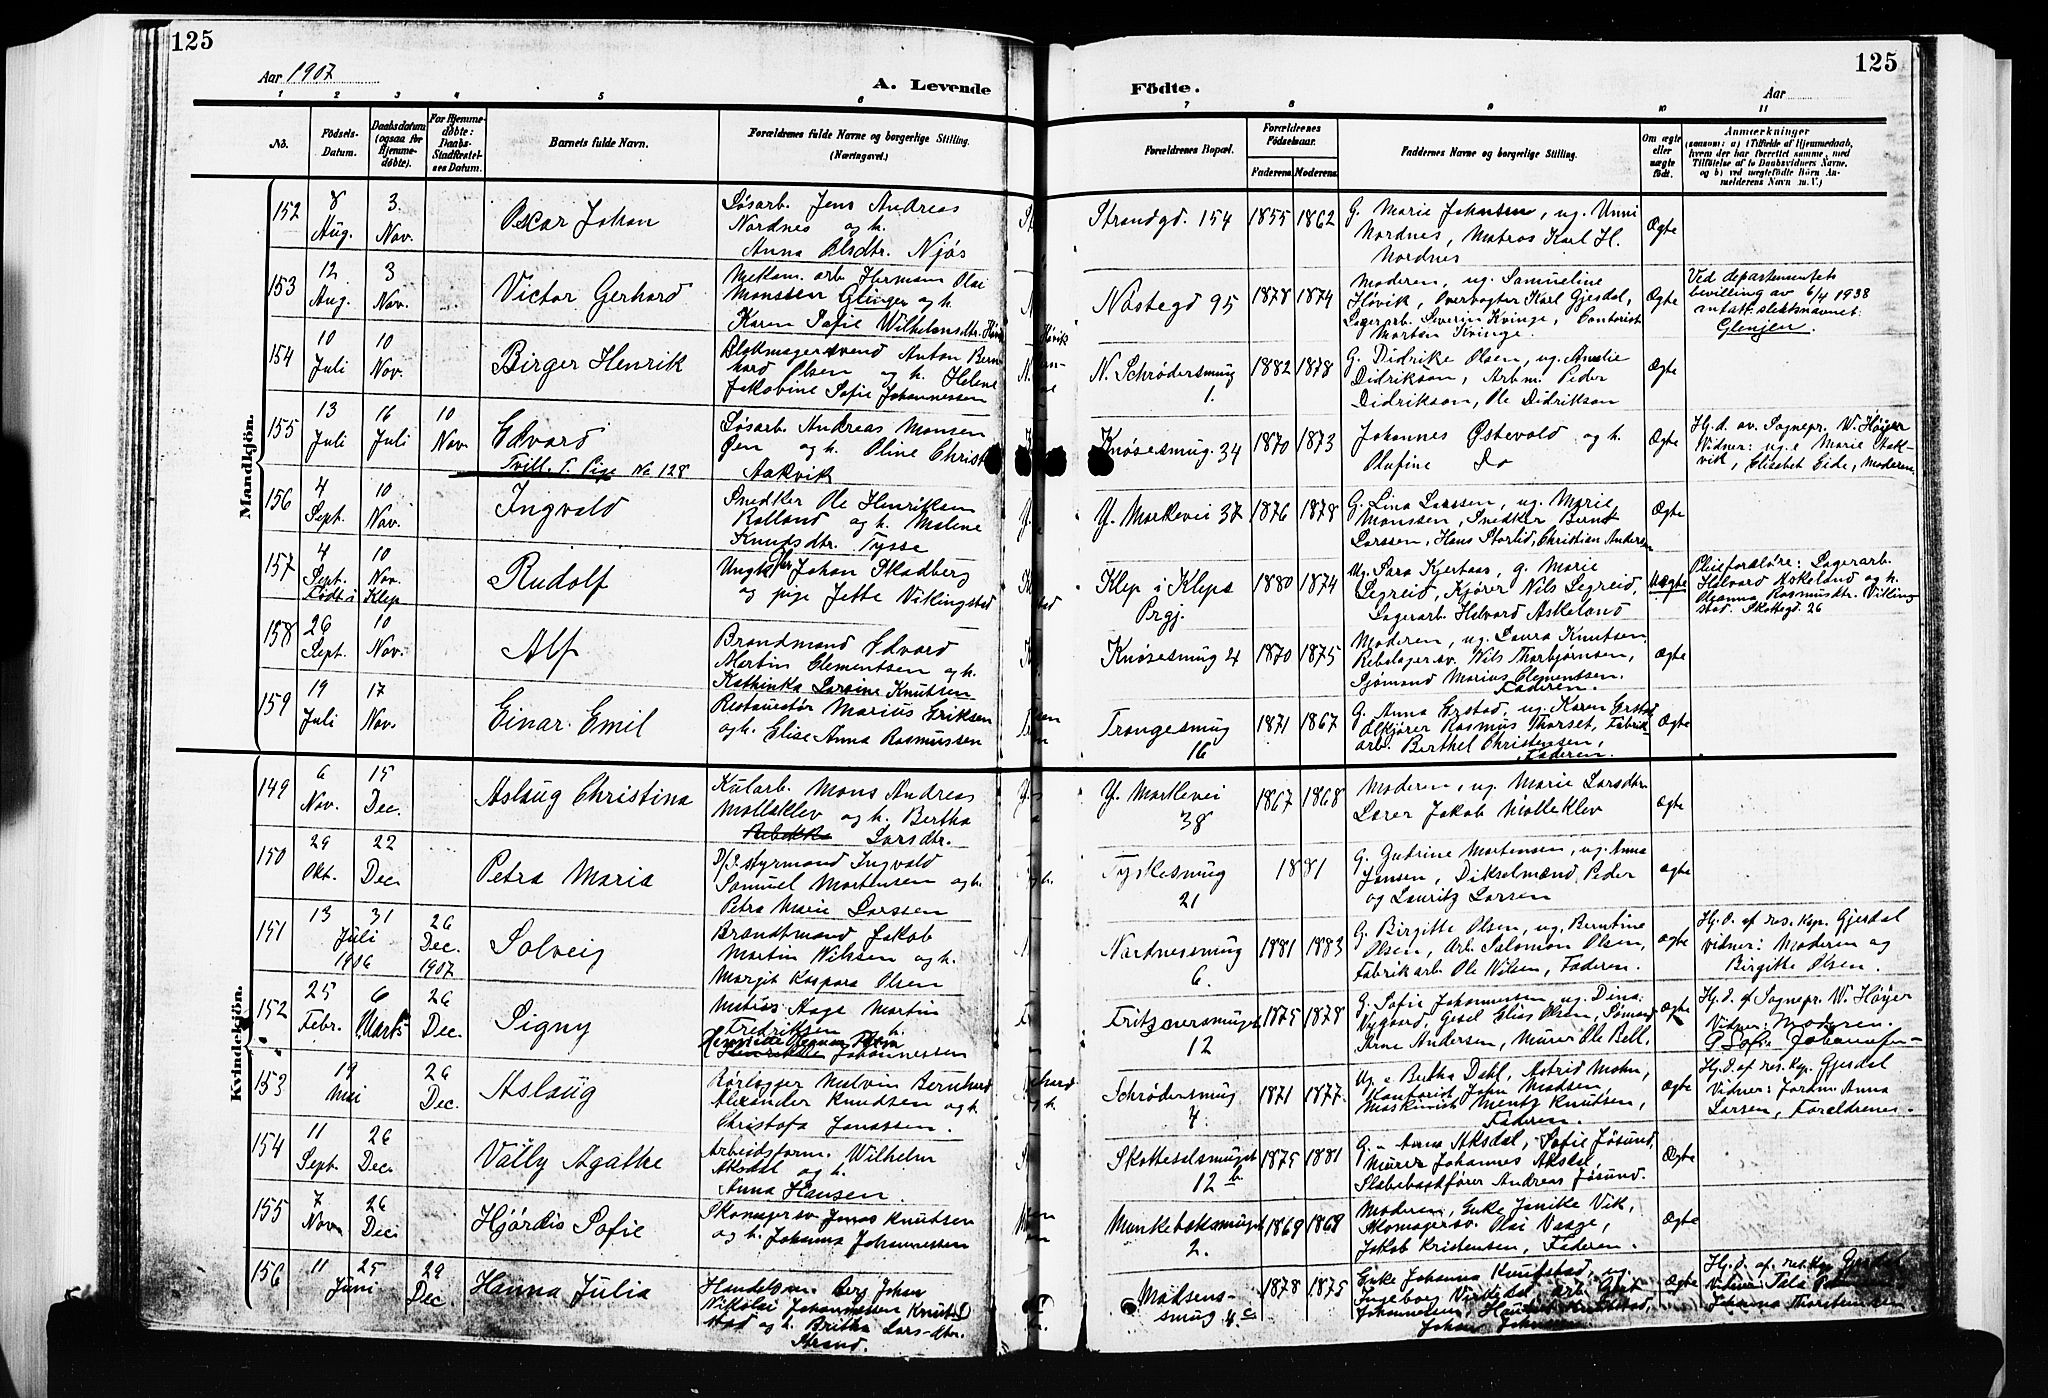 125
125
Aar 1907
A. Levende
Födte.
Aar
1 2 3 4 5 6 7 8 9 10 11
No.
Födsels-Datum.
Daabsdatum (ogsaa for Hjemmedøbte).
For Hjemmedøbte: Daabs-Stadfæstelses Datum.
Barnets fulde Navn.
Forældrenes fulde Navne og borgerlige Stilling.
(Næringsvei.)
Forældrenes Bopæl.
Forældrenes Födselsaar.
Faderens
Moderens
Faddernes Navne og borgerlige Stilling.
Om ægte eller uægte födt.
Anmærkninger
Mandkjön.
152 8 Aug. 3 Nov. Oscar Johan
Løsarb. Jens Andreas
Nordnes og h.
Anna Olsdtr. Njøs
Strandgd. 154 1855 1862
G. Marie Johansen, ug. Unni
Nordnes, Matros Karl H.
Nordnes
Ægte
153 12 Aug. 3 Nov. Victor Gerhard
Mekan. arb. Herman Olai
Monssen Glinger og h.
Karen Sofie Wilhelmsdtr. Høvik
Nøstegd 95 1878 1874
Moderen, ug. Samueline
Høvik, Overvogter Karl Gjesdal,
Lagerarb. Severin Kvinge, Contorist
Morten Kvinge.
Ægte
Ved departementets
bevilling av 6/4 1938
antatt slektsnavnet:
Glenjen.
154 10 Juli 10 Nov. Birger Henrik
Blokmagersvend Anton Bern
hard Olsen og h. Helene
Jakobine Sofie Johannessen
N. Schrødersmug
1. 1882 1878
G. Didrike Olsen, ug. Amalie
Didrikson, Arbm. Peder
Didrikson, Ole Didrikson
Ægte
155 13 Juli 16 Juli 10 Nov. Edvard
Tvill. T. Pige No 128
Løsarb. Andreas Monsen
Øen og h. Oline Christ
Aakvik
Knøsesmug. 34 1870 1873
Johannes Østevold og h.
Olufine Do
Ægte
Hj.d. av. Sognepr. W. Høyer
Vidner: ug.e Marie Aak-
vik, Elisabet Eide, Moderen
156 4 Sept. 10 Nov. Ingvald
Snedker Ole Henriksen
Rolland og h. Maline
Knudsdtr. Tysse
Y. Markevei 37 1876 1878
G. Lina Larssen, ug. Marie
Monssen, Snedker Bernt
Larssen, Hans Storlid, Christian Andersen
Ægte
157 4 Sept. 10 Nov. Rudolf
Født i Klep
Ungk. Per Johan Skadberg
og pige Jette Vikingstad
Klep i Kleps
Prgj. 1880 1874
Ug. Sara Kjertaas, g. Marie
Legreid, Kjører Nils Legreid,
Lagerarb. Halvard Askeland
Uægte
Pleieforældre: Lagerarb.
Halvard Askeland og h.
Rasmusdtr. Viking
stad. Skottegd. 26
158 26 Sept. 10 Nov. Alf
Brandmand Edvard
Martin Clementsen og h.
Kathinka Larsine Knutsen
Knøsesmug 4 1870 1875
Moderen, ug. Laura Knutsen
Rebslagersv. Nils Thorbjørnsen,
Sjømand Marius Clementsen.
Faderen.
Ægte
159 19 Juli 17 Nov. Einar Emil
Restauratør Marius Eriksen
og h. Elise Anna Rasmussen
Trangesmug
16 1871 1867
G. Anna Erstad, ug. Karen Erstad
Ølkjører Rasmus Thorset, Fabrik-
arb. Berthel Christensen,
Faderen.
Ægte
Kvindekjön.
149 6 Nov. 15 Dec. Aslaug Christina
Kularb. Mons Andreas
Molleklev og h. Bertha
Larsdtr.
Y. Markevei
38 1867 1868
Moderen, ug. Marie Larsdtr.
Lærer Jakob Molleklev
ægte
150 29 Okt. 22 Dec. Petra Maria
D/S. styrmand Ingvald
Samuel Mortensen og h.
Petra Marie Larssen
Tyskesmug
21 1881
G. Gudrine Mortensen, ug. Anna
Jansen, Dikselmænd Peder
og Lauritz Larsen
ægte
151 13 31 Juli 1906 26 Dec. 1907 Solveig
Brandtmand Jakob
Martin Nilssen og h.
Margit Kaspara Olsen
Nordnessmug
6. 1881 1883
G. Birgitte Olsen, ug. Berntine
Olsen, Arb. Salomon Olsen,
Fabrikarb. Ole Nilsen, Faderen.
ægte
Hj.d. af res. kap. Gjesdal
Vidner: Moderen og
Birgitte Olsen.
152 25 Febr. 6 Marts 26 Dec. Signy
Matros Aage Martin
Fredriksen h.
Johannessen
Fritznersmuget
12 1875 1878
G. Sofie Johannessen ug. Dina
Nygaard, Gesel Elias Olsen, Sømand
Arne Andersen, Murer Ole Bell.
ægte
Hj.d. af Sognepr. W. Høyer
Vidner: Moderen.
G. Sofie Johannesen
153 19 Mai 26 Dec. Aslaug
Rørlegger Malvin Bernhard
Alexander Knudsen og h.
Christofa Jonassen.
Schrødersmug
4. 1871 1877
Ug. e Bertha Dahl, Astrid Mohn,
Kontorist John Madsen,
Maskinist Mentz Knutsen,
Faderen.
Ægte
Hj.d. af res. kap. Gjesdal
Vidner: Jordm. Anna
Larsen, Forældrene.
154 11 Sept. 26 Dec. Vally Agathe
Arbeidsform. Wilhelm
Aksdal og h.
Anna Hansen.
Skottesalsmuget
12 b. 1875 1881
G. Anna Aksdal, Sofie Jøsund,
Murer Johannes Aksdal,
Slæbebaadfører Andreas Jøsund.
Ægte
155 7 Nov 26 Dec. Hjørdis Sofie
Skomagersv. Jonas Knutsen
og h. Johanna Johannessen
Munkebæksmuget
2. 1869 1869
Moderen, Enke Janike Vik,
Skomagersv. Olai Vaage,
Jakob Kristensen, Faderen.
Ægte
156 11 25 Juni 29 Dec. Hanna Julia
Handelsm. Berg Johan
Nikolai Johannessen Knut
stad og h. Britha Lars-dtr.
Strand.
Madsens-
smug 4c 1878 1875
Enke Johanna Knutstad, ug.
Ingeborg Virkedal, arb.
Johannessen,
Johan
Ægte
Hj.d. af res. kap. Gjesdal
Vidner:
Johanna Thorsteinsen